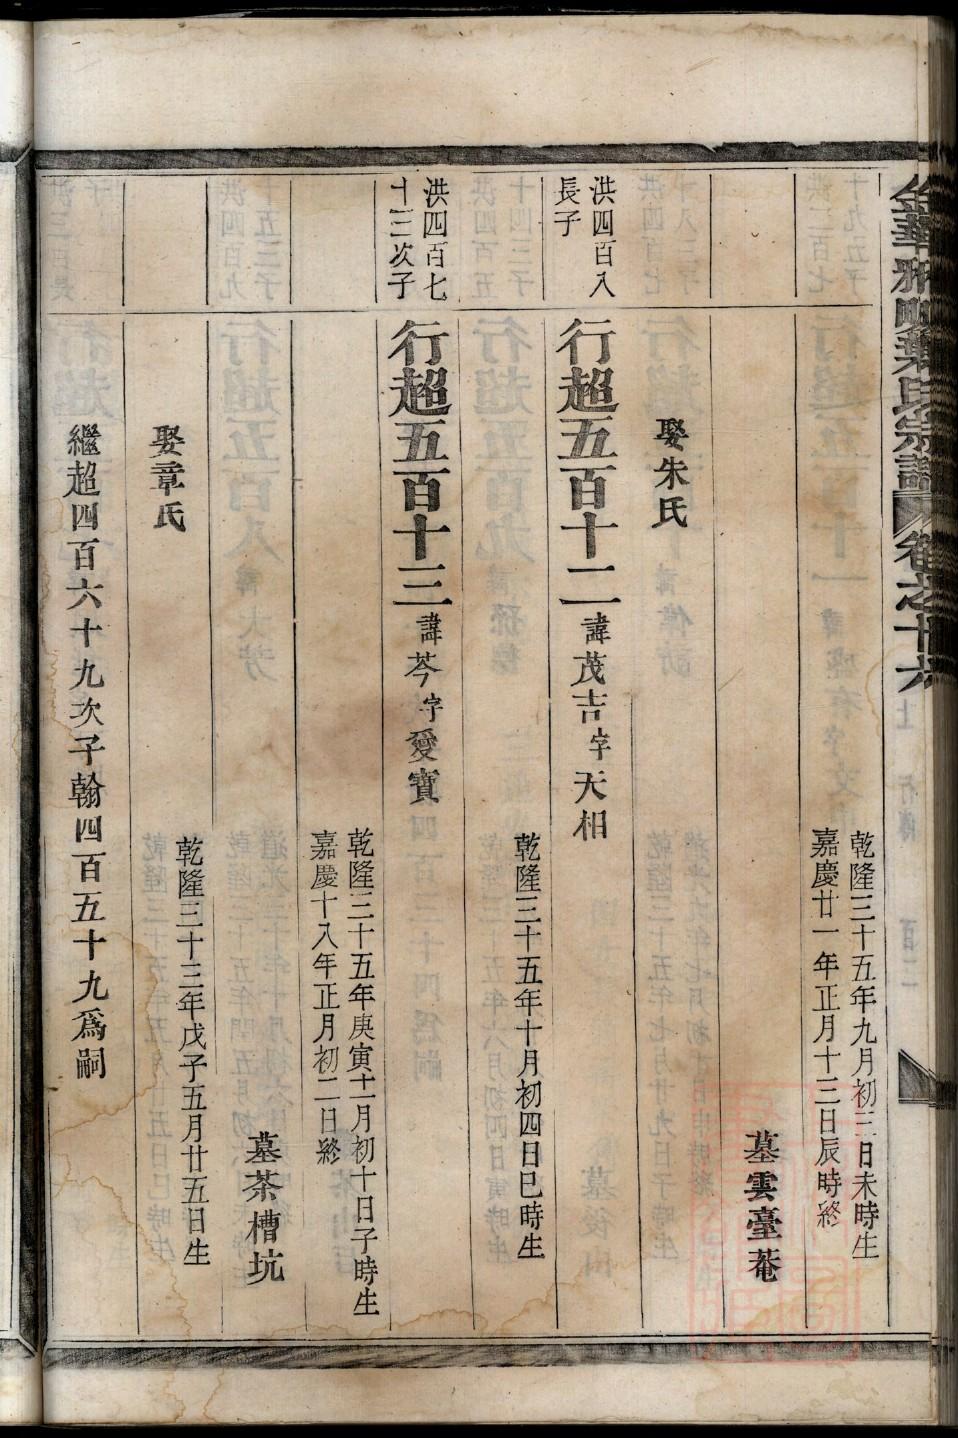 乾隆三十五年九月初三日未時生
嘉慶廿一年正月十三日辰時終
墓雲臺菴
娶朱氏
洪四百八
長子
行超五百十二諱茂吉字天相
乾隆三十五年十月初四日巳時生
洪四百七
十三次子
行超五百十三諱芩字愛寶
乾隆三十五年庚寅十一月初十日子時生
嘉慶十八年正月初二日終
墓茶槽坑
娶章氏
乾隆三十三年戊子五月廿五日生
繼超四百六十九次子翰四百五十九爲嗣